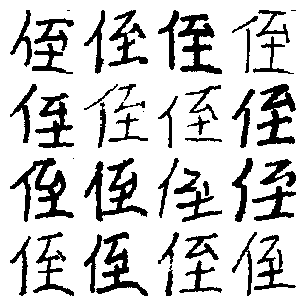 侄侄侄侄
侄侄侄侄
侄侄侄侄
侄侄侄侄